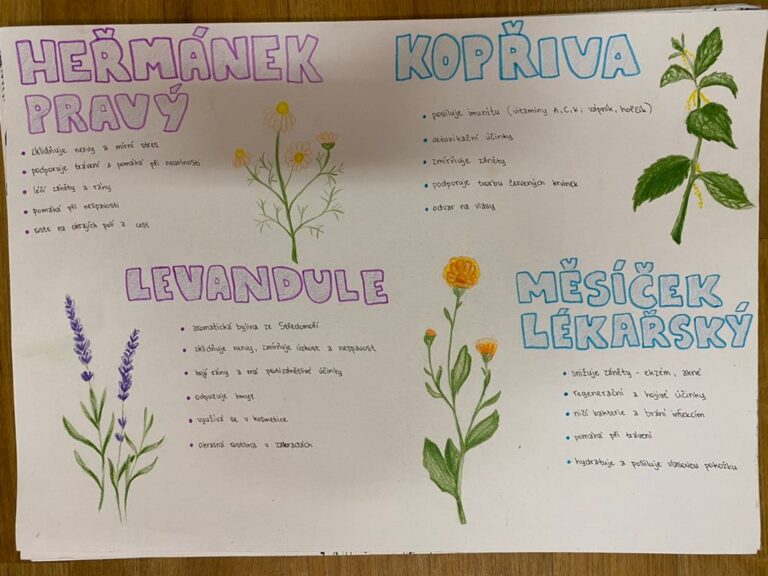 HEŘMÁNEK
PRAVÝ
• zklidňuje nervy a mírní stres
• podporuje trávení a pomáhá při nevolnosti
• léčí záněty a rány
• pomáhá při nespavosti
• roste na okrajích polí a cest
KOPŘIVA
• posiluje imunitu (vitamíny A, C, k; vápník, hořčík)
• detoxikační účinky
• zmírňuje záněty
• podporuje tvorbu červených krvinek
• odvar na vlasy
LEVANDULE
• aromatická bylina ze Středomoří
• zklidňuje nervy, zmírňuje úzkost a nespavost
• hojí rány a má protizánětlivé účinky
• odpuzuje hmyz
• využívá se v kosmetice
• okrasná rostlina v zahradách
MĚSÍČEK
LÉKAŘSKÝ
• snižuje záněty - ekzém, akné
• regenerační a hojivé účinky
• ničí bakterie a brání infekcím
• pomáhá při trávení
• hydratuje a posiluje vlasovou pokožku